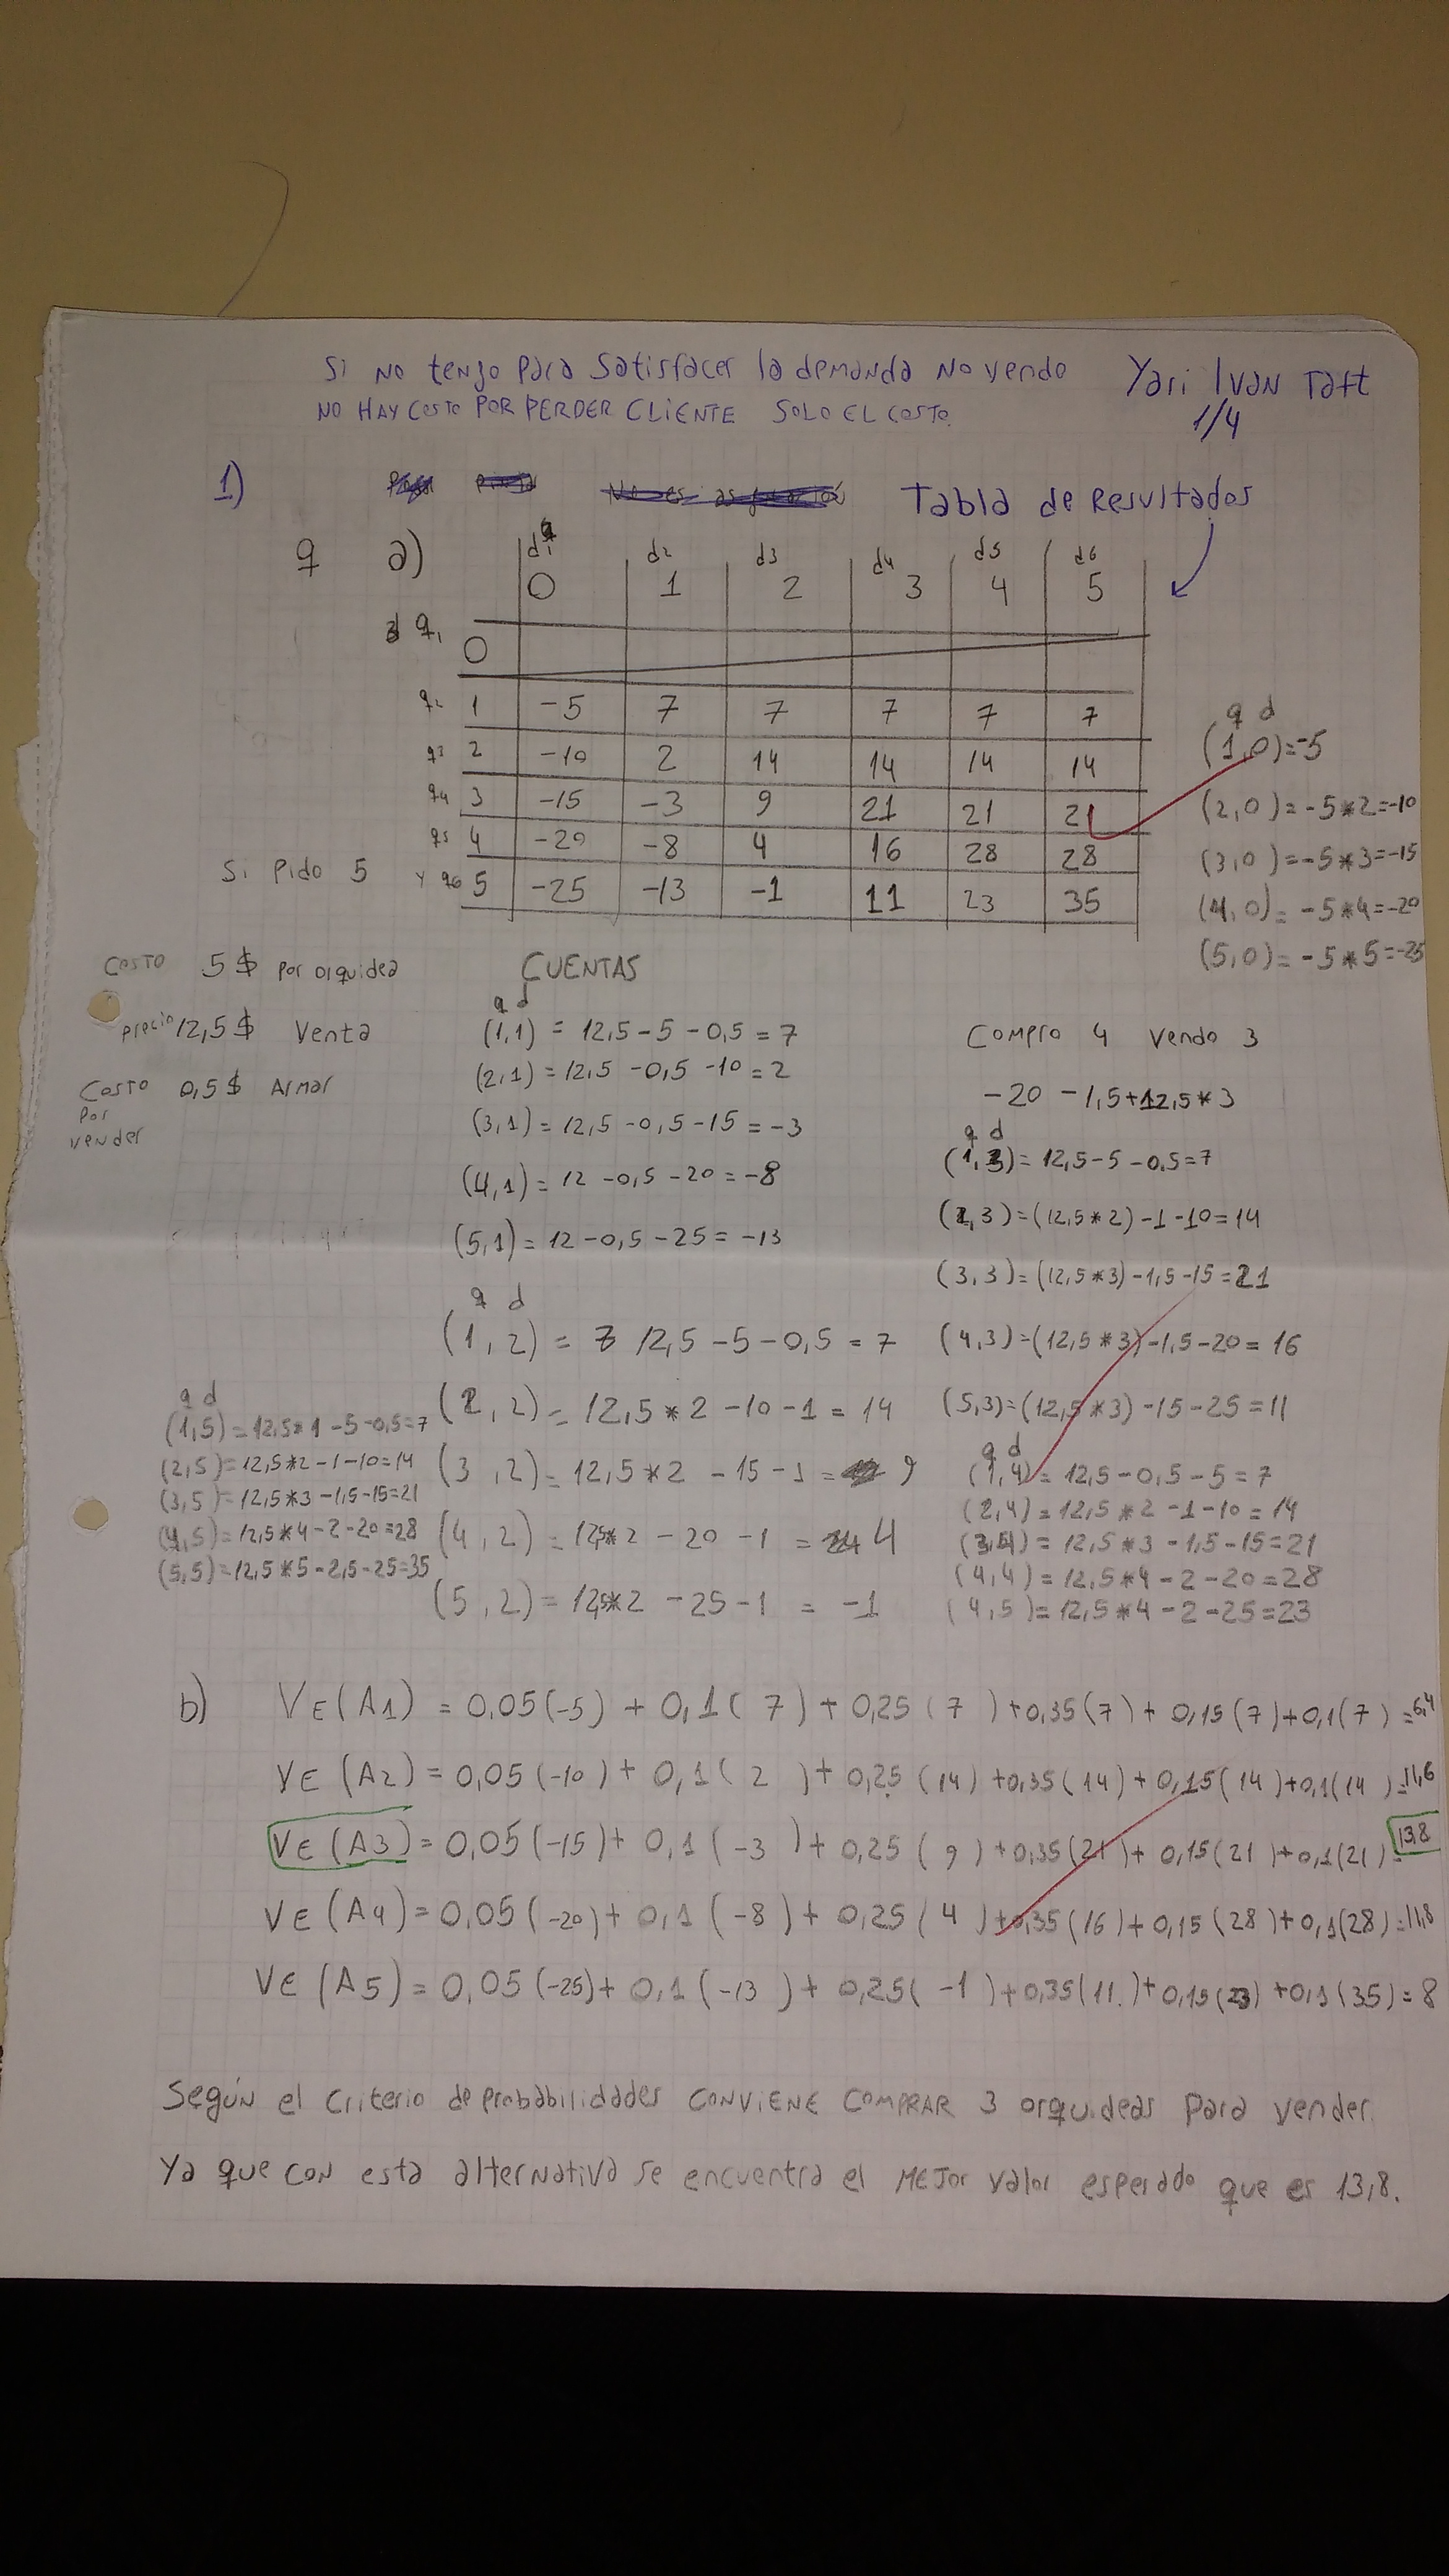 Si NO tengo para satisfacer la demanda NO vendo
NO HAY COSTO POR PERDER CLIENTE SOLO EL COSTO.
Yari Ivan Taft
1/4
1)
Tabla de Resultados
q a)
d1 d2 d3 d4 d5 d6
0 1 2 3 4 5
q1 0
q2 1 -5 7 7 7 7 7
q3 2 -10 2 14 14 14 14
q4 3 -15 -3 9 21 21 21
q5 4 -20 -8 4 16 28 28
Si Pido 5 y q6 5 -25 -13 -1 11 23 35
q d
(1,0)=-5
(2,0)=-5*2=-10
(3,0)=-5*3=-15
(4,0)=-5*4=-20
(5,0)=-5*5=-25
Costo 5$ por orquidea
Precio 12,5$ Venta
Costo 0,5$ Armar
Por
vender
CUENTAS
q d
(1,1) = 12,5-5-0,5=7
(2,1)=12,5-0,5-10=2
(3,1)=12,5-0,5-15=-3
(4,1)=12-0,5-20=-8
(5,1)=12-0,5-25=-13
q d
(1,2) = 12,5-5-0,5=7
(2,2)=12,5*2-10-1=14
(3,2)=12,5*2-15-1= 9
(4,2)=12,5*2-20-1= 4
(5,2)=12,5*2-25-1=-1
Compro 4 vendo 3
-20 -1,5+12,5*3
q d
(1,3)=12,5-5-0,5=7
(2,3)=(12,5*2)-1-10=14
(3,3)=(12,5*3)-1,5-15=21
(4,3)=(12,5*3)-1,5-20=16
(5,3)=(12,5*3)-15-25=11
q d
(1,4)=12,5-0,5-5=7
(2,4)=12,5*2-1-10=14
(3,4)=12,5*3-1,5-15=21
(4,4)=12,5*4-2-20=28
(4,5)=12,5*4-2-25=23
q d
(1,5)=12,5*1-5-0,5=7
(2,5)=12,5*2-1-10=14
(3,5)=12,5*3-1,5-15=21
(4,5)=12,5*4-2-20=28
(5,5)=12,5*5-2,5-25=35
b) VE(A1) = 0,05(-5)+0,1(7)+0,25(7)+0,35(7)+0,15(7)+0,1(7)=6,4
VE(A2)=0,05(-10)+0,1(2)+0,25(14)+0,35(14)+0,15(14)+0,1(14)=11,6
VE(A3)=0,05(-15)+0,1(-3)+0,25(9)+0,35(21)+0,15(21)+0,1(21)=13,8
VE(A4)=0,05(-20)+0,1(-8)+0,25(4)+0,35(16)+0,15(28)+0,1(28)=11,8
VE(A5)=0,05(-25)+0,1(-13)+0,25(-1)+0,35(11)+0,15(23)+0,1(35)=8
Según el criterio de probabilidades CONVIENE COMPRAR 3 orquideas para vender.
Ya que con esta alternativa se encuentra el MEJOR valor esperado que es 13,8.